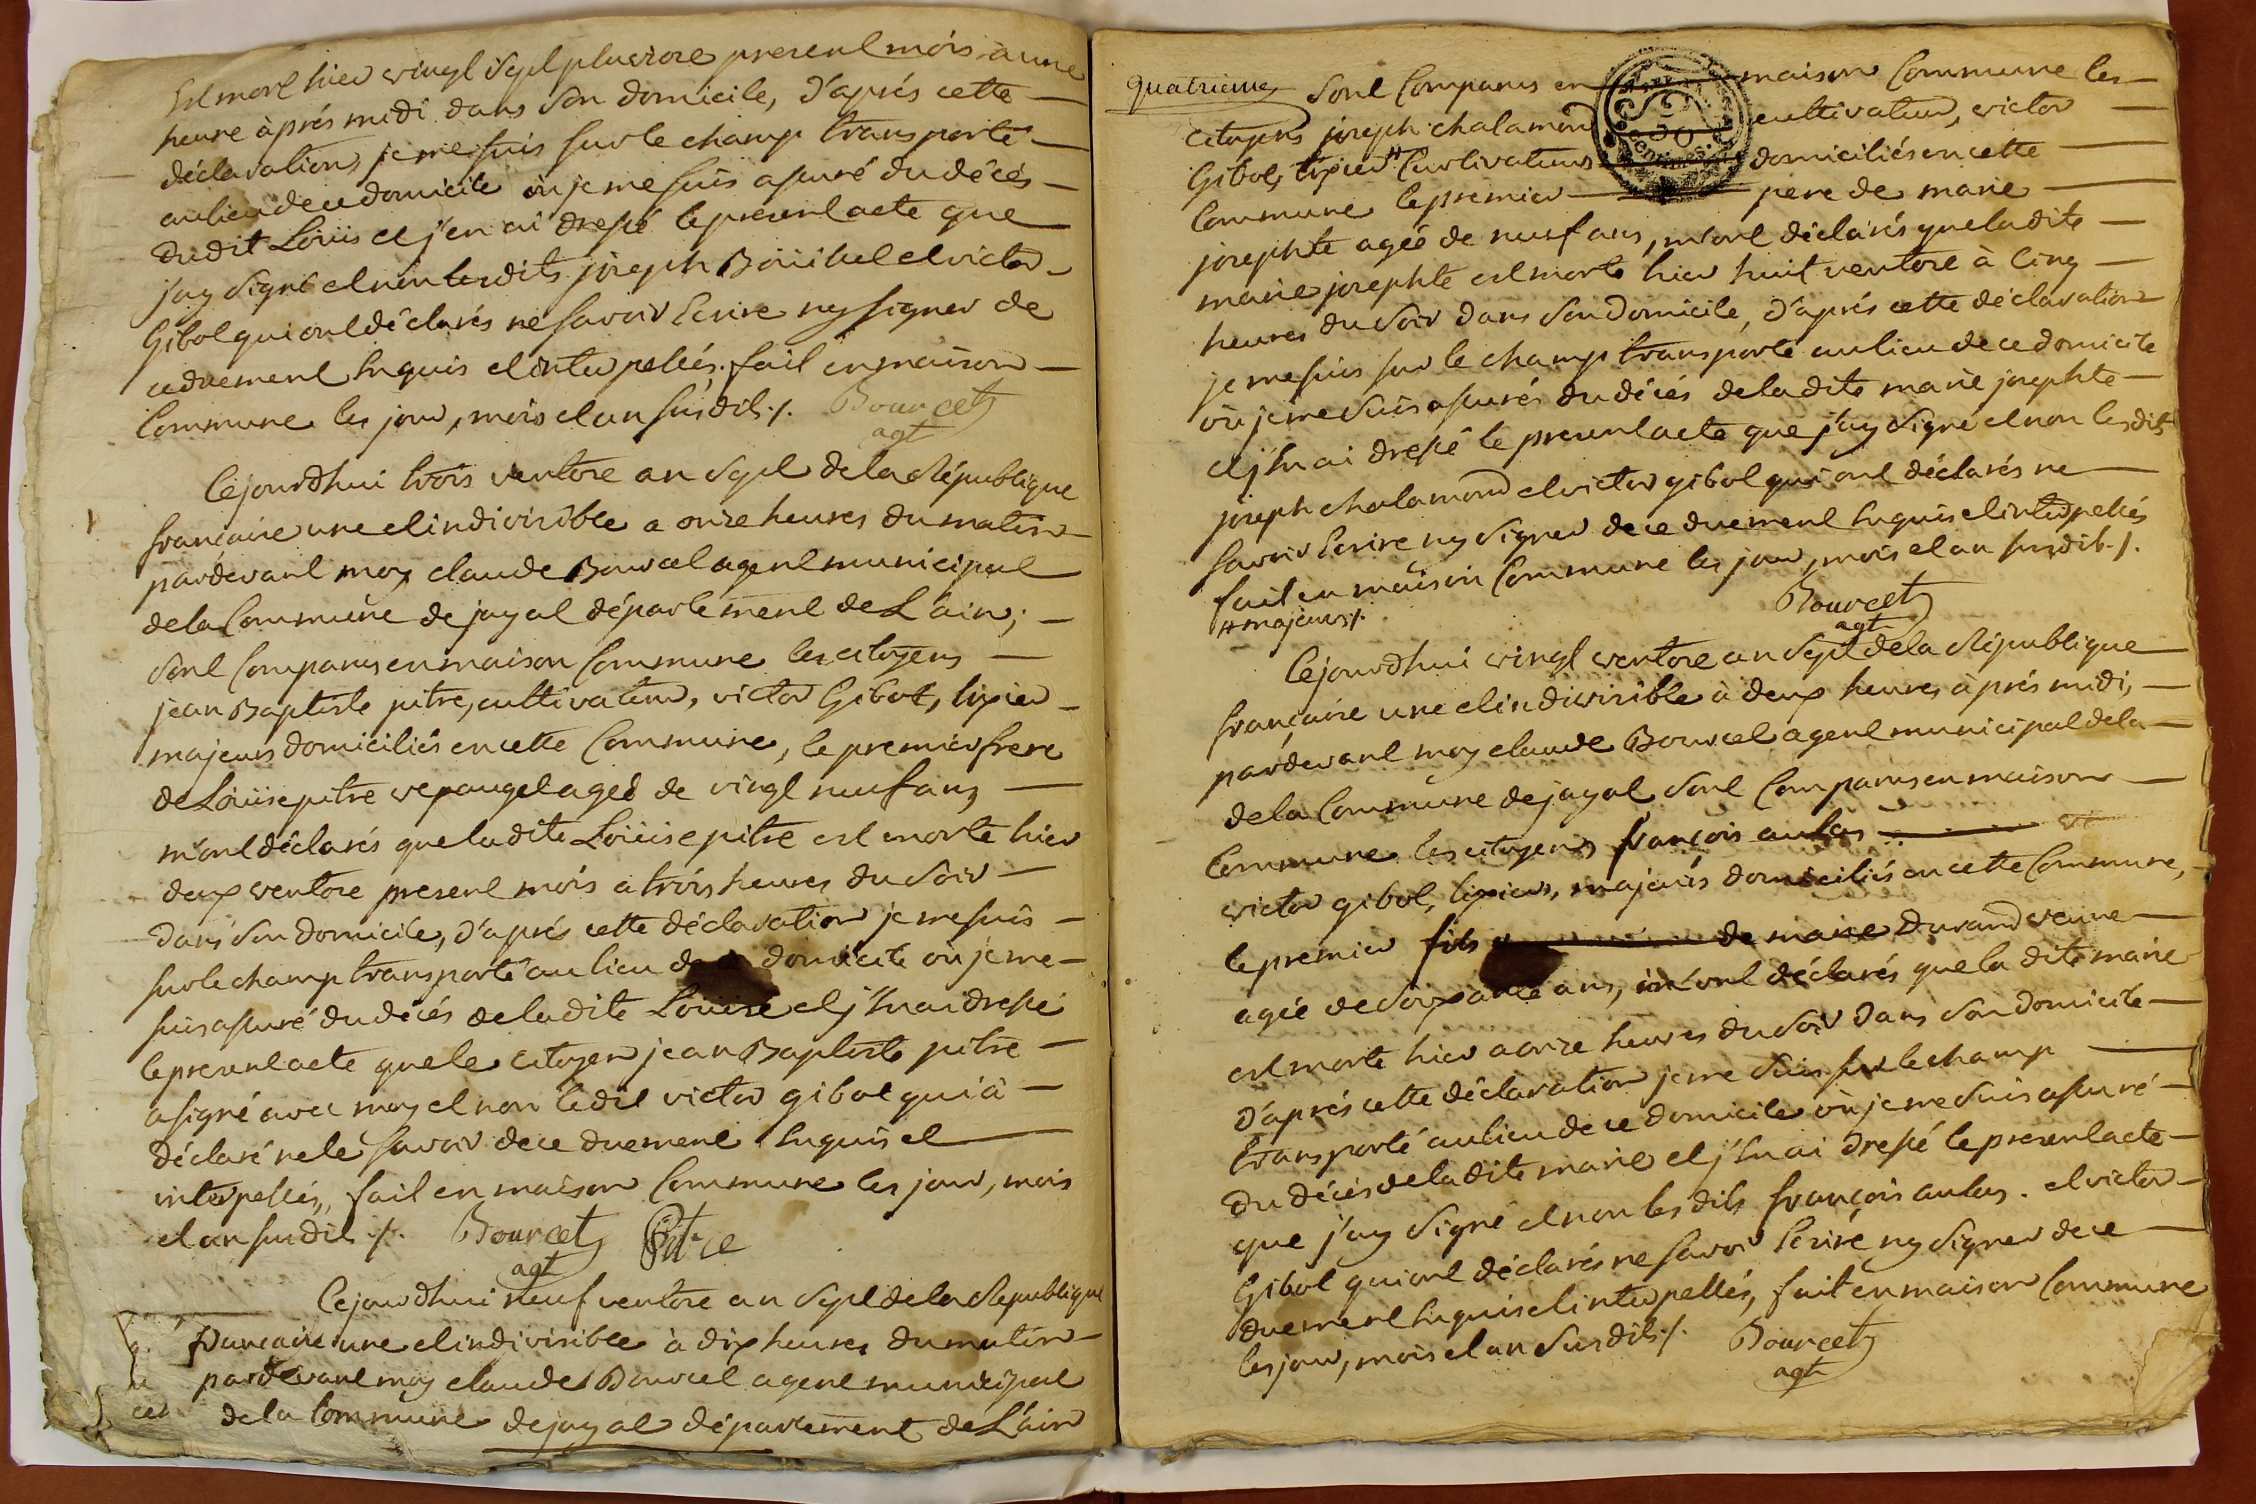 Est mort hier vingt sept pluviose present mois à une
heure àprés midi dans son domicile, d'aprés cette
déclaration je me suis sur le champ transporté
au lieu de ce domicile où je me suis assuré du décés
dudit Loüis et j'en ai dressé le present acte que
j'ay signé et non lesdits joseph Boüibel et victor
Gibot qui ont déclarés ne savoir Ecrire ny signer de
ce duement Enquis et interpellés. fait en maison
Commune les jour, mois et an susdits ./. Bourcet
agt
Cejourdhui trois ventose an sept de la République
francaise une et indivisible a onze heures du matin
pardevant moy claude Bourcet agent municipal
de la Commune de jayat département de L'ain,
sont Comparus en maison Commune les citoyens
jean Baptiste pitre, cultivateur, victor Gibot, tixier
majeurs domiciliés en cette Commune, le premier frere
de Loüise pitre ageé de vingt neuf ans
m'ont déclarés que ladite Loüise pitre est morte hier
deux ventose present mois a trois heures du soir
dans son domicile, d'aprés cette déclaration je me suis
sur le champ transporté au lieu de domicile où je me
suis assuré du décés de ladite Loüise et j'Enai dressé
le present acte que le citoyen jean Baptiste pitre
a signé avec moy et non ledit victor gibot qui à
déclaré ne le savoir de ce duement Enquis et
interpellés, fait en maison Commune les jour, mois
et an susdits ./. Bourcet Pitre
agt
Cejourdhui neuf ventose an sept de la République
francaise une et indivisible à dix heures du matin
pardevant moy claude Bourcet agent municipal
de la Commune de jayat département de L'ain
quatrieme sont Comparus en maison Commune les
citoyens joseph chalamon cultivateur, victor
Gibot, tixier # Cultivateurs domiciliés en cette
Commune le premier pere de marie
josephte agée de neuf ans, m'ont déclarés que ladite
marie josephte est morte hier huit ventose à Cinq
heures du soir dans son domicile, d'aprés cette déclaration
je me suis sur le champ transporté au lieu de ce domicile
où je me suis assurés du décés de ladite marie josephte
et j'Enai dressé le present acte que j'ay signé et non lesdits
joseph chalamond et victor gibot qui ont déclarés ne
savoir Ecrire ny signer de ce duement Enquis et interpellés
fait en maison Commune les jour, mois et an susdits ./.
# majeurs /. Bourcet
agt
Cejourdhui vingt ventose an sept de la République
françaire une et indivisible à deux heures àprés midi,
pardevant moy claude Bourcet agent municipal dela
de la Commune de jayat sont Comparus en maison
Commune les citoyens françois aulas et
victor gibot, tixiers, majeurs domiciliés en cette Commune,
le premier fils de marie Durand veuve
agée de soixante ans, m'ont déclarés que la dite marie
est morte hier a onze heures du soir dans son domicile
d'aprés cette déclaration je me suis sur le champ
transporté au lieu de ce domicile où je me suis assuré
du décés de ladite marie et j'Enai dressé le present acte
que j'ay signé et non les dits françois aulas. et victor
Gibot qui ont déclarés ne savoir Ecrire ny signer de ce
duement Enquis et interpellés, fait en maison Commune
les jour, mois et an susdits /. Bourcet
agt